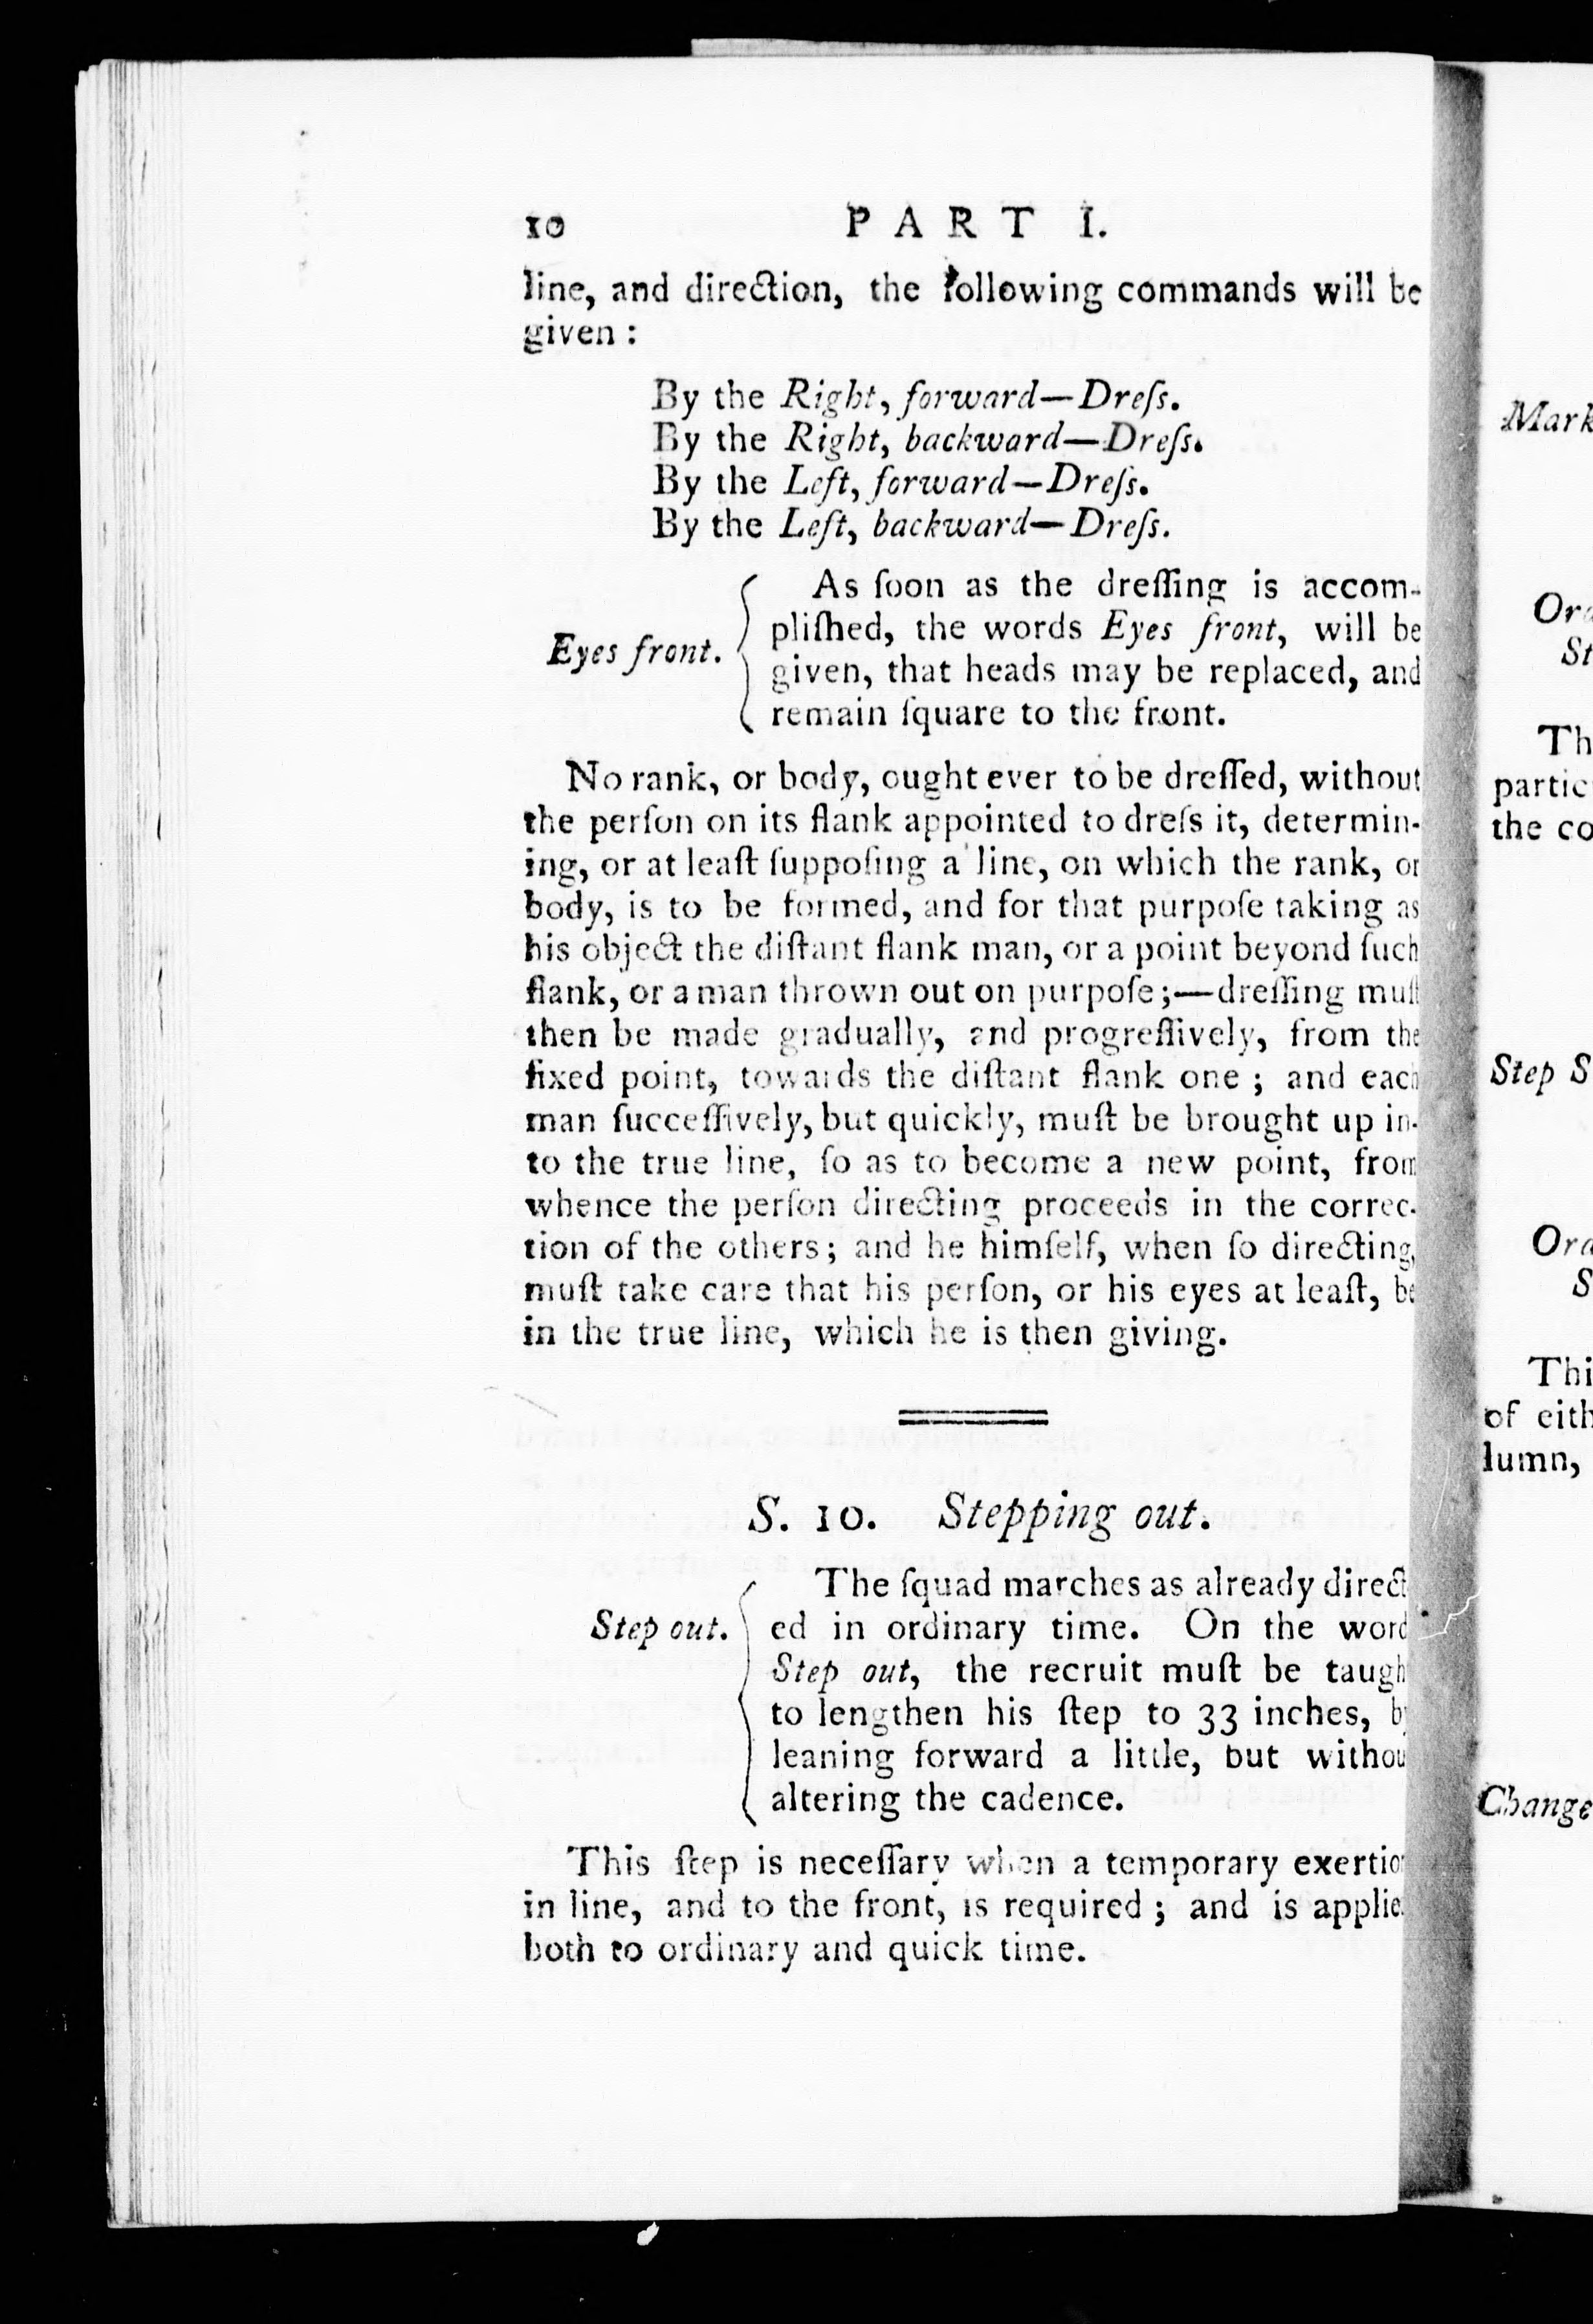 10 PART I.
line, and direction, the following commands will be
given :
By the Right, forward—Dreſs.
By the Right, backward—Dreſs.
By the Left, forward—Dreſs.
By the Left, backward—Dreſs.
As ſoon as the dreſſing is accom-
pliſhed, the words Eyes front, will be
Eyes front.
given, that heads may be replaced, and
remain ſquare to the front.
No rank, or body, ought ever to be dreſſed, without
the perſon on its flank appointed to dreſs it, determin-
ing, or at leaſt ſuppoſing a line, on which the rank, or
body, is to be formed, and for that purpoſe taking as
his object the diſtant flank man, or a point beyond ſuch
flank, or a man thrown out on purpoſe;—dreſſing muſt
then be made gradually, and progreſſively, from the
fixed point, towards the diſtant flank one ; and each
man ſucceſſively, but quickly, muſt be brought up in-
to the true line, ſo as to become a new point, from
whence the perſon directing proceeds in the correc-
tion of the others; and he himſelf, when ſo directing,
muſt take care that his perſon, or his eyes at leaſt, be
in the true line, which he is then giving.
S. 10. Stepping out.
The ſquad marches as already direct
Step out.
ed in ordinary time. On the word
Step out, the recruit muſt be taugh
to lengthen his ſtep to 33 inches, by
leaning forward a little, but withou
altering the cadence.
This ſtep is neceſſary when a temporary exertio
in line, and to the front, is required ; and is applie
both to ordinary and quick time.
Mark
Ord
St
Th
partic
the co
Step S
Ord
S
Thi
of eith
lumn,
Change